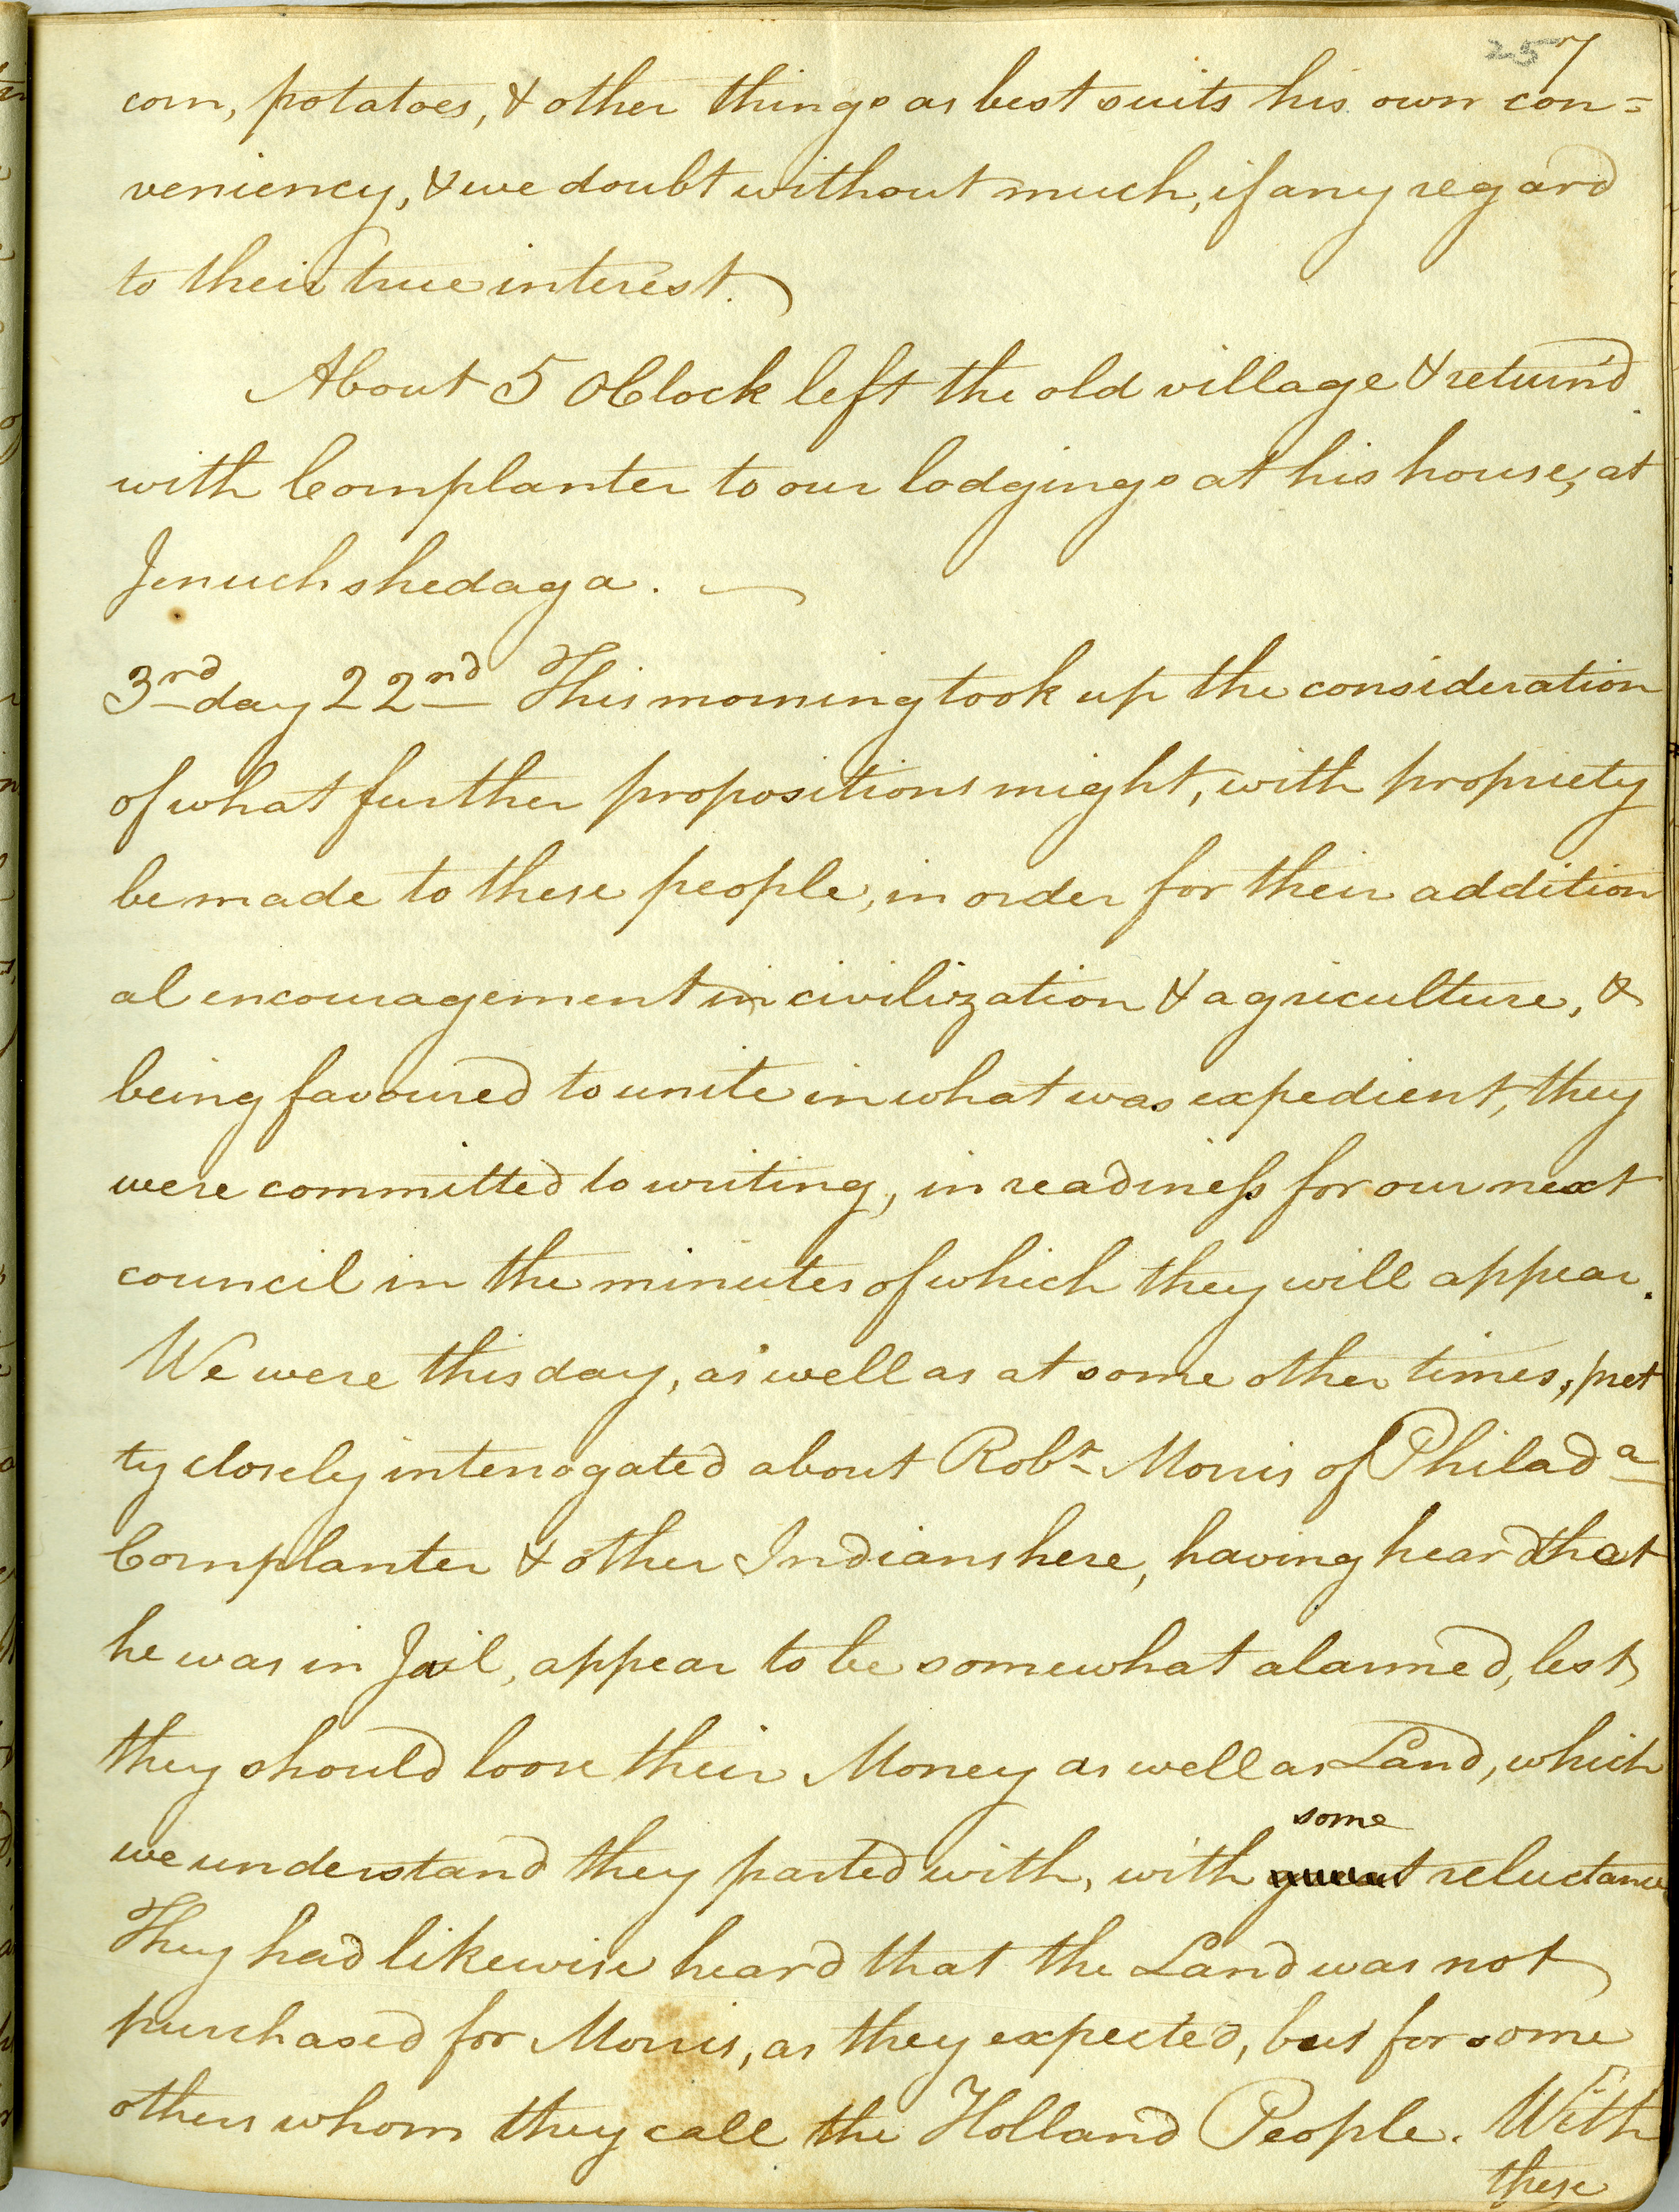 257
corn, potatoes, & other things as best suits his own con=
veniency, & we doubt without much, if any regard
to their true interest.
About 5 OClock left the old village & return'd
with Cornplanter to our lodgings at his house, at
Jenuchshedaga.
3rd day 22nd This morning took up the consideration
of what further propositions might, with propriety
be made to these people, in order for their addition
al encouragement in civilization & agriculture, &
being favoured to unite in what was expedient, they
were committed to writing, in readiness for our next
council in the minutes of which they will appear.
We were this day, as well as at some other times, pret
ty closely interrogated about Robt. Morris of Philada
Cornplanter & other Indians here, having heard that
he was in Jail, appear to be somewhat alarmed, lest
they should loose their Money as well as Land, which
some
we understand they parted with, with great reluctance
They had likewise heard that the Land was not
purchased for Morris, as they expected, but for some
others whom they call the Holland People. With
these